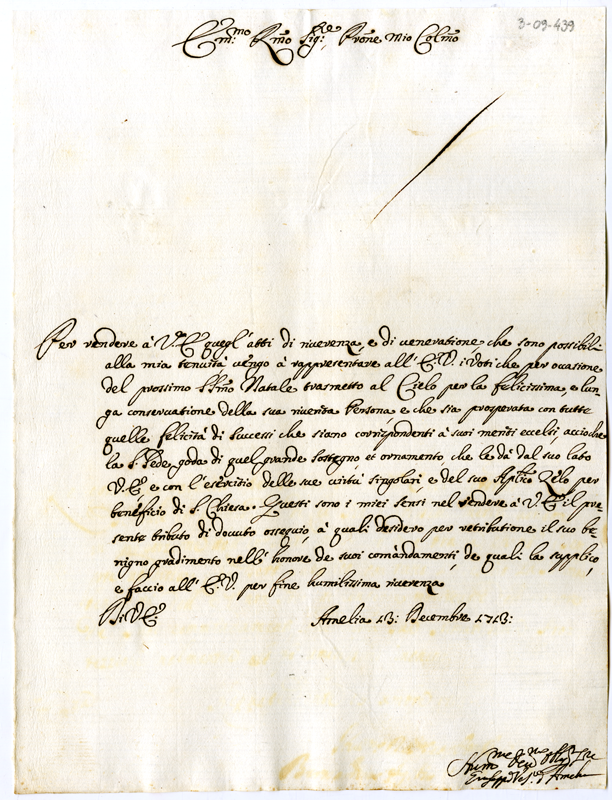 3-09-439
Em.mo Rmo Sig.re Prone mio Colmo
Per rendere à V.ra E. quegl'atti di riuerenza, e di ueneratione che sono possibili
alla mia tenuità uengo à rappresentare all'E.V. i uoti che per occasione
del prossimo SSmo Natale trasmetto al Cielo per la felicissima, e lun-
ga conseruatione della sua riuerita Persona e che sia prosperata con tutte
quelle felicità di successi che siano corrispondenti à suoi meriti eccelsi, accioche
la S. Sede goda di quel grande sostegno, et ornamento che le dà dal suo lato
V.E. e con l'esercitio delle sue uirtù singolari, e del suo Aplico Zelo per
beneficio di S. Chiesa. Questi sono i miei sensi nel rendere à V.E. il pre-
sente tributo di douuto ossequio, à quali desidero per retributione il suo be-
nigno gradimento nell'honore de suoi comandamenti, de quali la supplico,
e faccio all'E.V. per fine humilissima riuerenza
Di V.E.
Amelia 13: Decembre 1713:
Hum.mo
Giuseppe Vesc.o d'Amelia